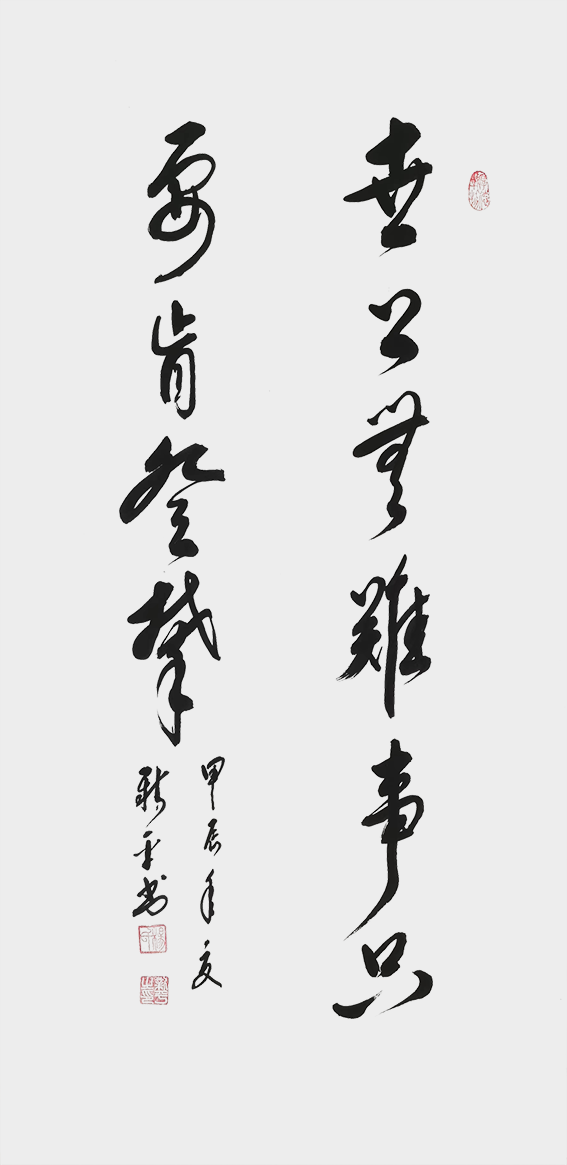 世上無難事只
要肯登攀
甲辰年夏
平书